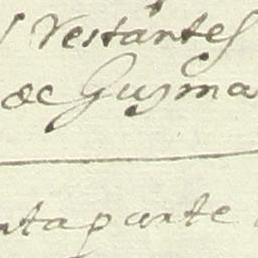 s restantes
de Guzma
nta parte